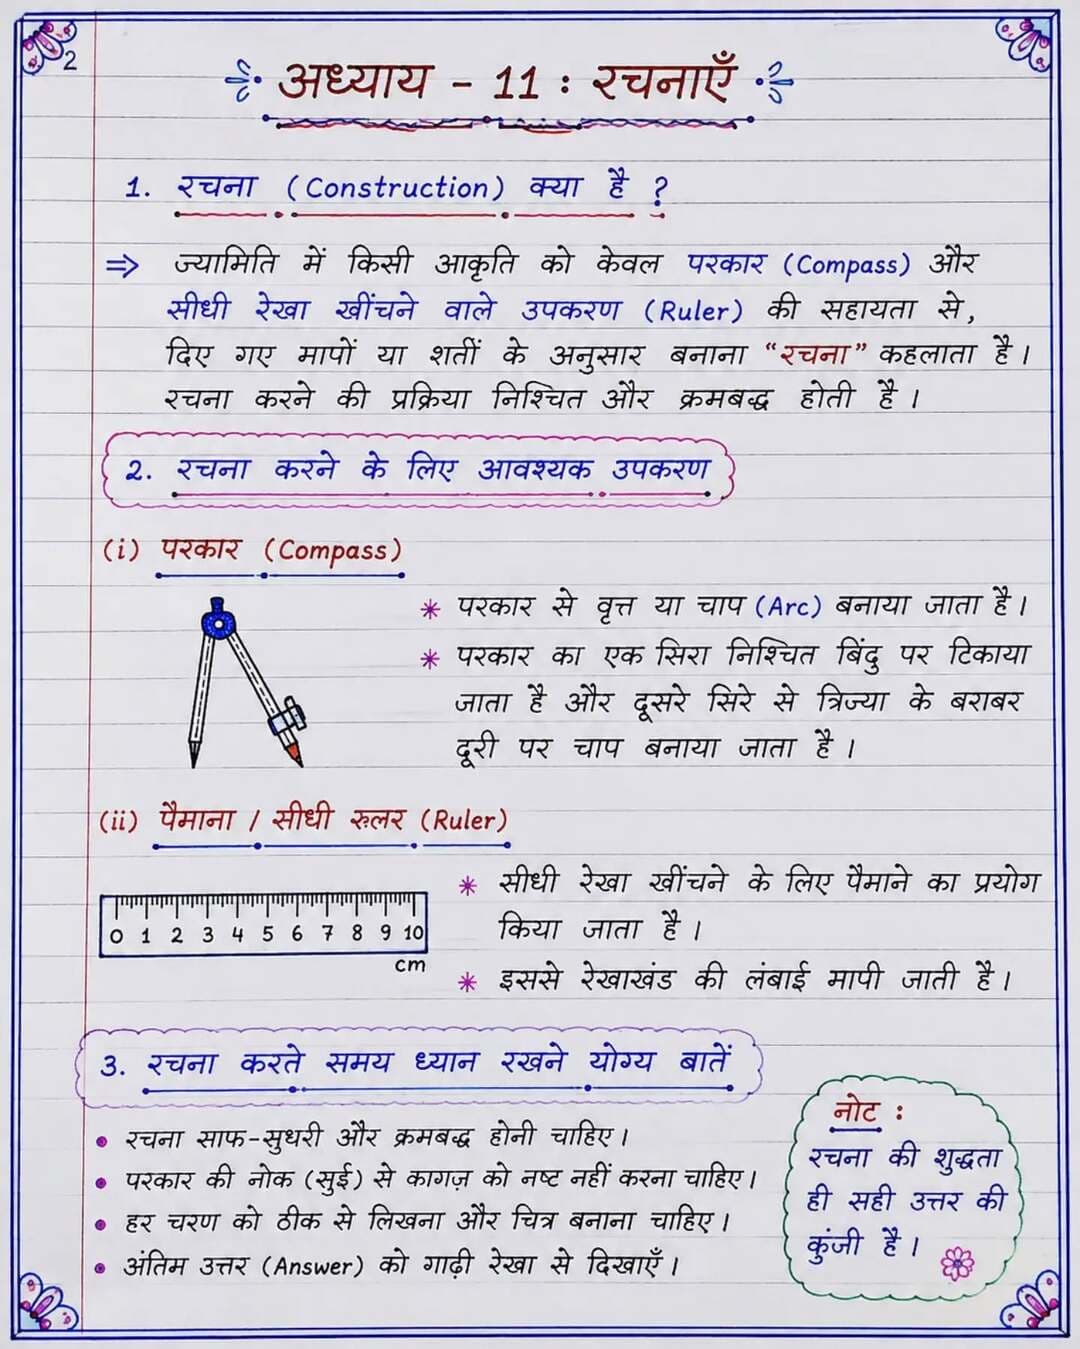 2
अध्याय - 11 : रचनाएँ
1. रचना (Construction) क्या है ?
⇒ ज्यामिति में किसी आकृति को केवल परकार (Compass) और
सीधी रेखा खींचने वाले उपकरण (Ruler) की सहायता से,
दिए गए मापों या शर्तों के अनुसार बनाना “रचना” कहलाता है।
रचना करने की प्रक्रिया निश्चित और क्रमबद्ध होती है।
2. रचना करने के लिए आवश्यक उपकरण
(i) परकार (Compass)
* परकार से वृत्त या चाप (Arc) बनाया जाता है।
* परकार का एक सिरा निश्चित बिंदु पर टिकाया
जाता है और दूसरे सिरे से त्रिज्या के बराबर
दूरी पर चाप बनाया जाता है।
(ii) पैमाना / सीधी रुलर (Ruler)
0 1 2 3 4 5 6 7 8 9 10
cm
* सीधी रेखा खींचने के लिए पैमाने का प्रयोग
किया जाता है।
* इससे रेखाखंड की लंबाई मापी जाती है।
3. रचना करते समय ध्यान रखने योग्य बातें
• रचना साफ-सुथरी और क्रमबद्ध होनी चाहिए।
• परकार की नोक (सुई) से कागज़ को नष्ट नहीं करना चाहिए।
• हर चरण को ठीक से लिखना और चित्र बनाना चाहिए।
• अंतिम उत्तर (Answer) को गाढ़ी रेखा से दिखाएँ।
नोट :
रचना की शुद्धता
ही सही उत्तर की
कुंजी है।